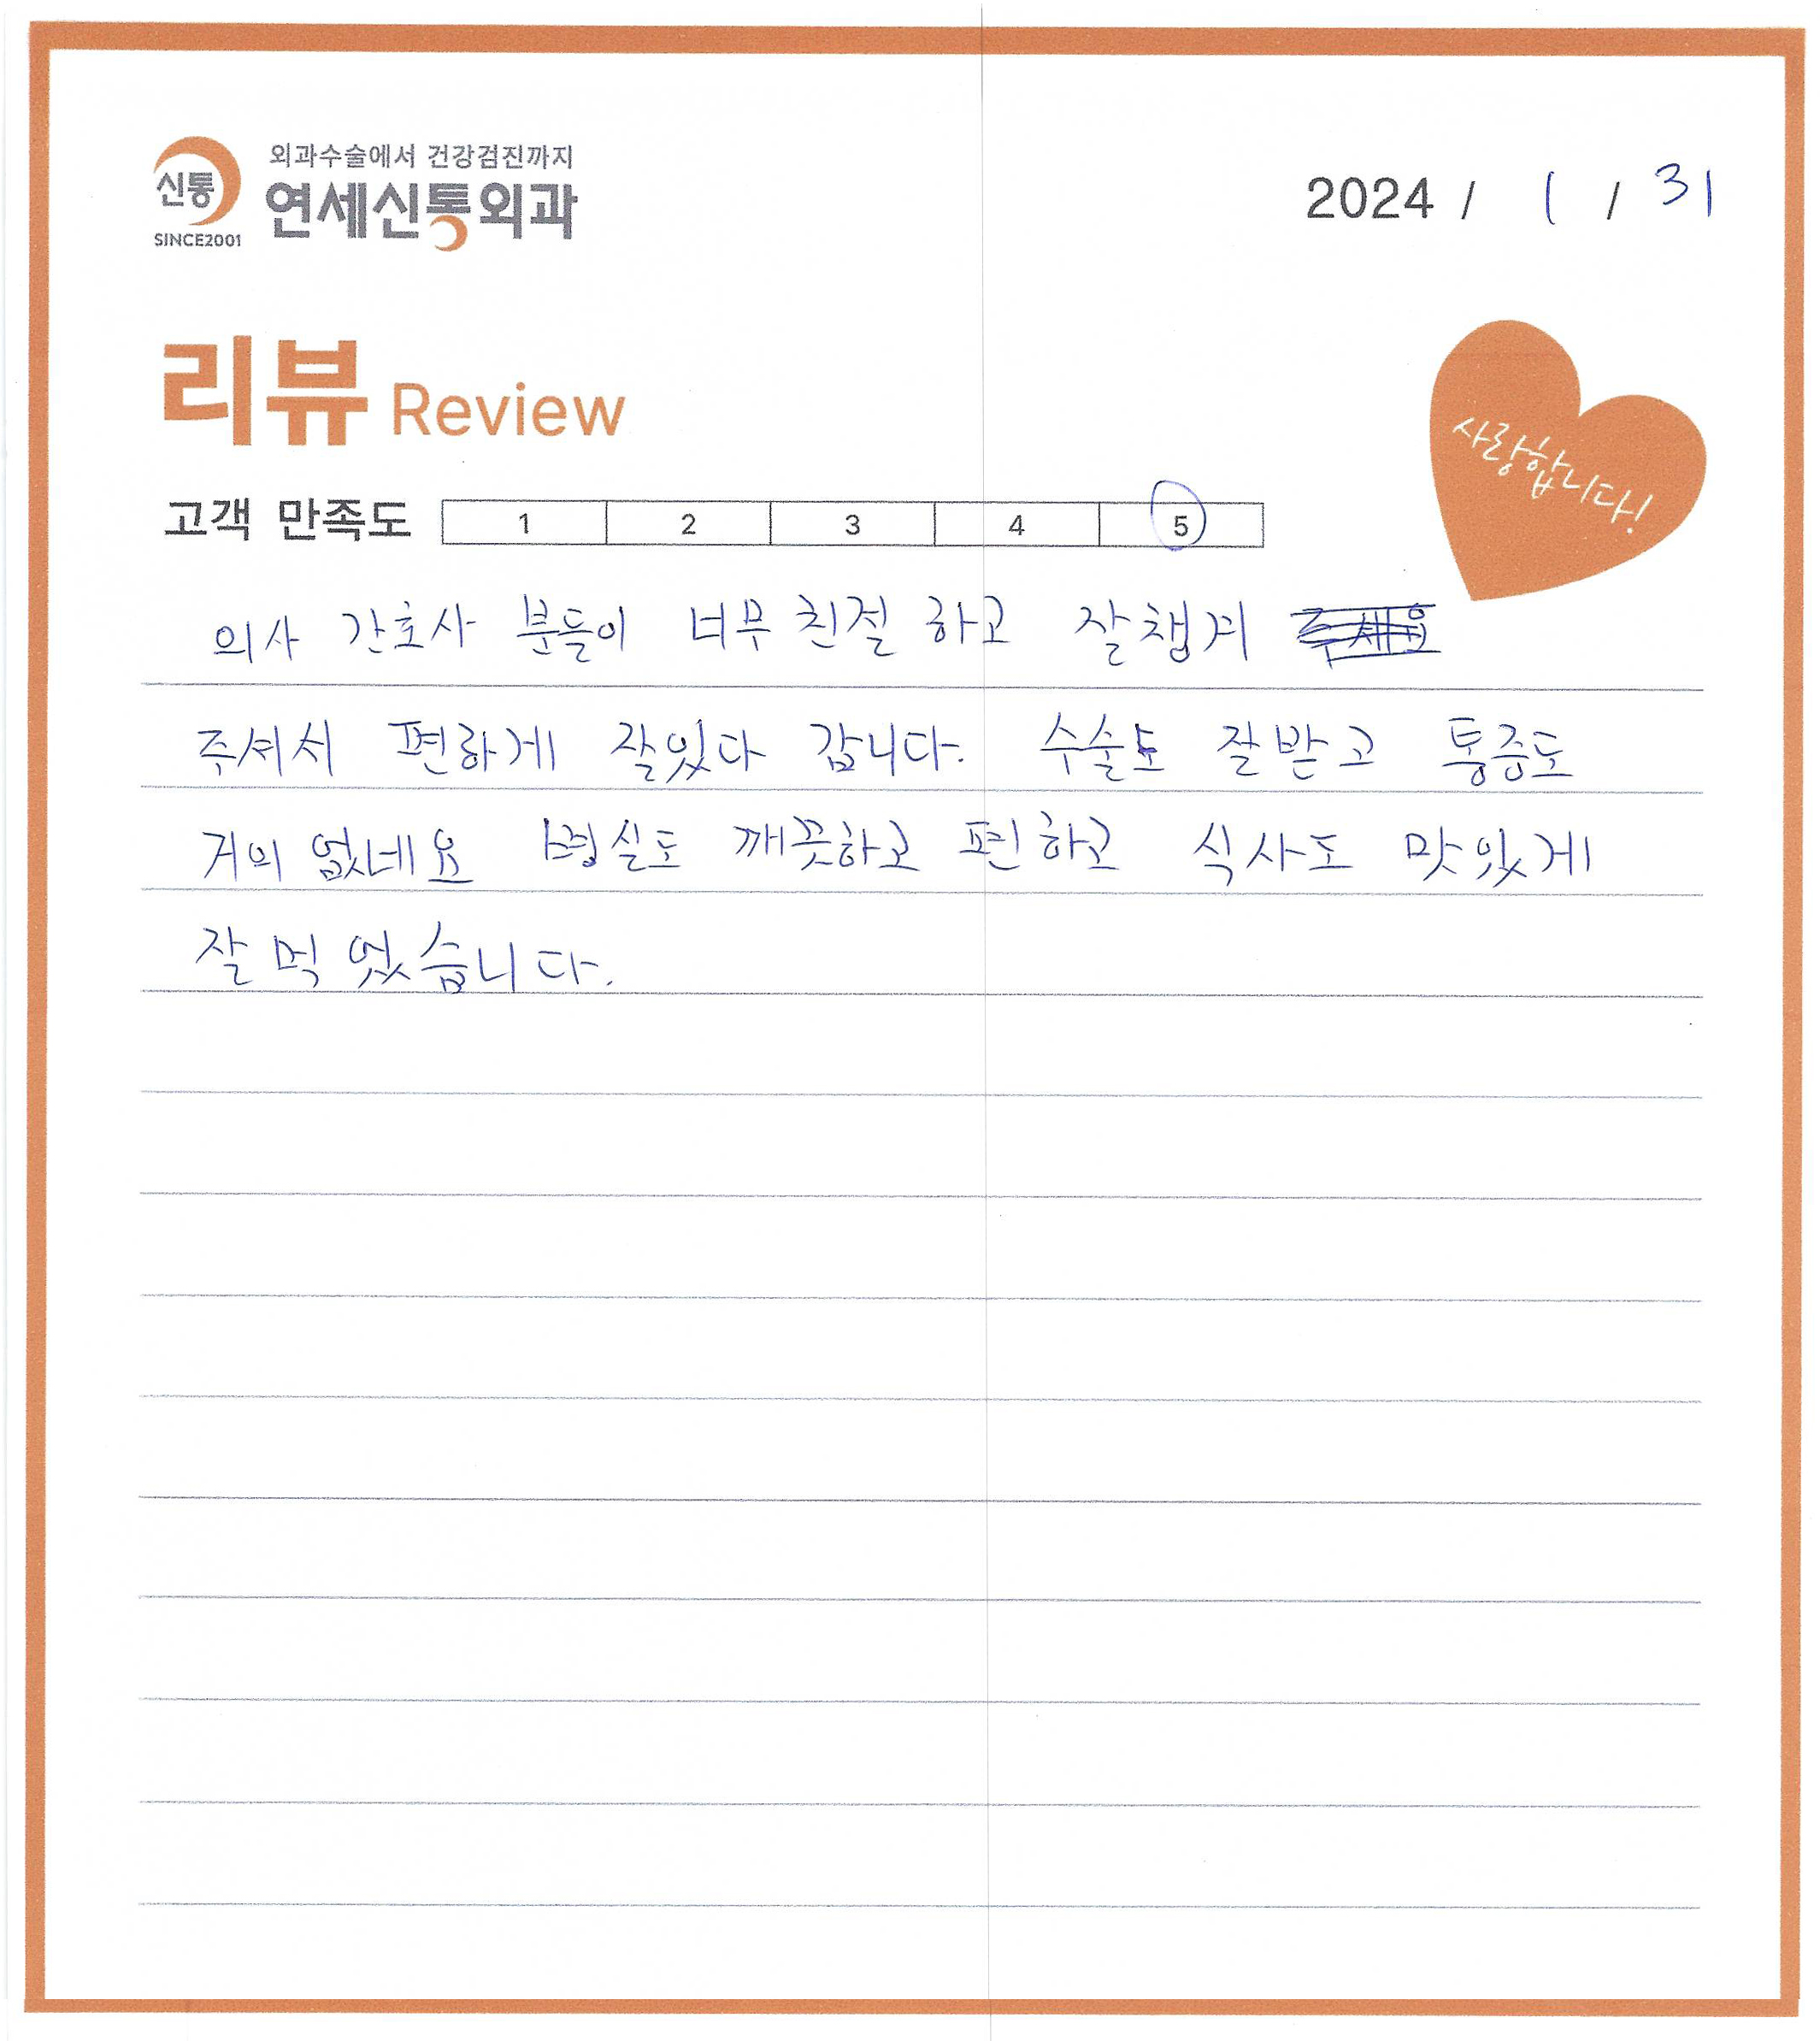 외과수술에서 건강검진까지
신통
연세신통외과
SINCE2001
2024 / 1 / 31
리뷰 Review
사랑합니다!
고객 만족도 1 2 3 4 5
의사 간호사 분들이 너무 친절 하고 잘챙겨 주세요
주셔서 편하게 잘있다 갑니다. 수술도 잘받고 통증도
거의 없네요 병실도 깨끗하고 편하고 식사도 맛있게
잘 먹었습니다.